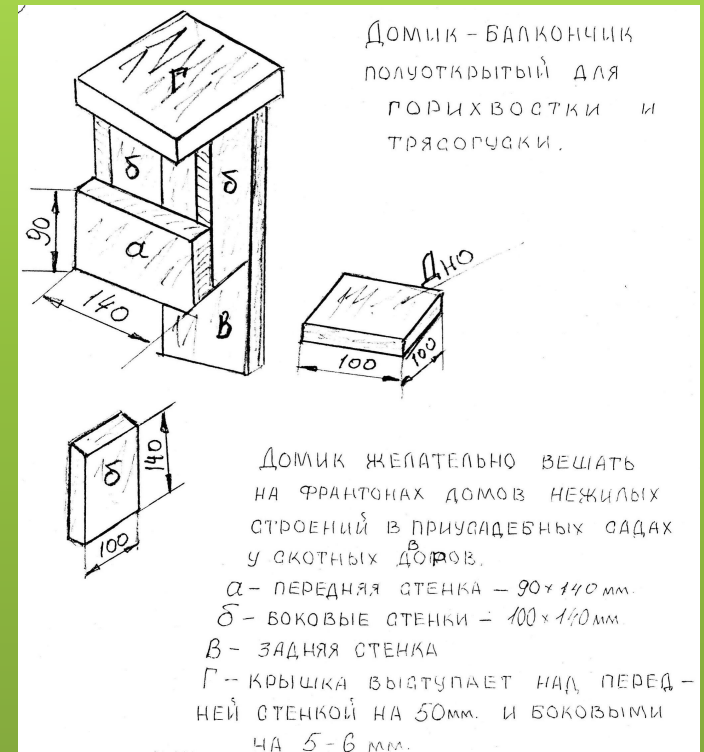 ДОМИК-БАЛКОНЧИК
ПОЛУОТКРЫТЫЙ ДЛЯ
ГОРИХВОСТКИ И
ТРЯСОГУСКИ.
Г
б
б
а
В
90
140
ДНО
100
100
б
140
100
ДОМИК ЖЕЛАТЕЛЬНО ВЕШАТЬ
НА ФРАНТОНАХ ДОМОВ НЕЖИЛЫХ
СТРОЕНИЙ В ПРИУСАДЕБНЫХ САДАХ
У СКОТНЫХ ДВОРОВ.
а - ПЕРЕДНЯЯ СТЕНКА - 90×140 мм.
б - БОКОВЫЕ СТЕНКИ - 100×140 мм
В - ЗАДНЯЯ СТЕНКА
Г - КРЫШКА ВЫСТУПАЕТ НАД ПЕРЕД-
НЕЙ СТЕНКОЙ НА 50мм. И БОКОВЫМИ
НА 5-6 мм.